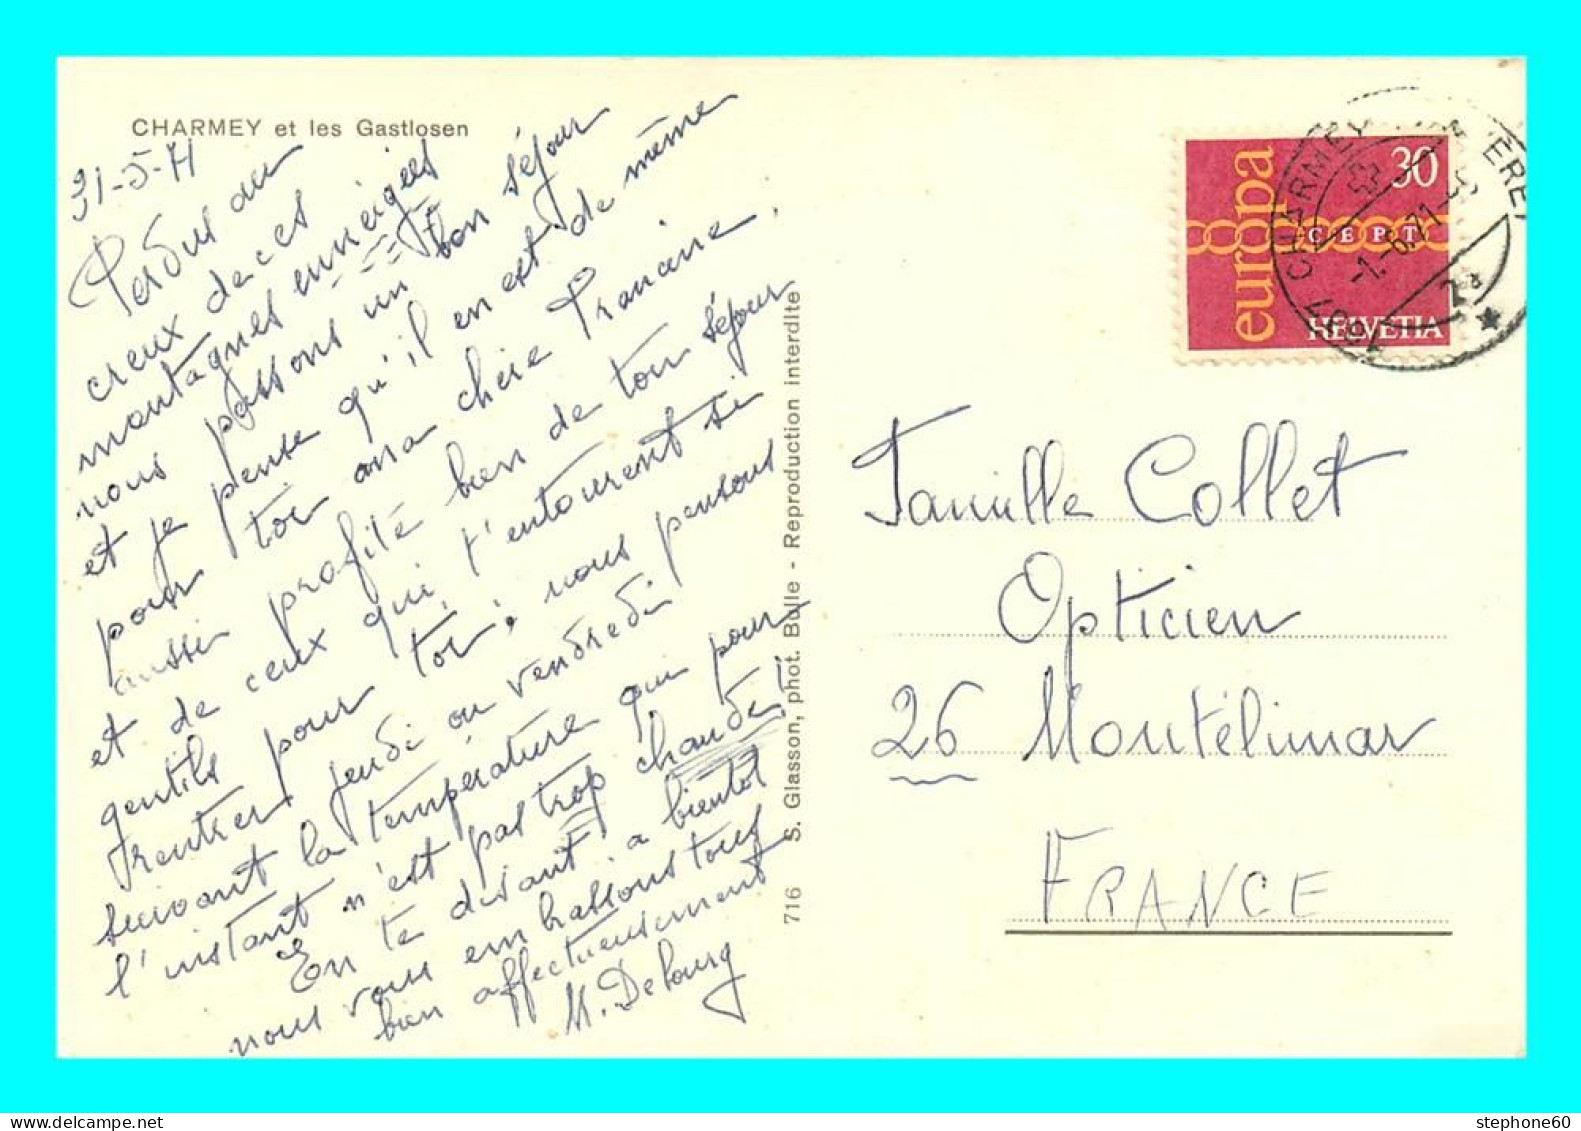 CHARMEY et les Gastlosen
31-5-71
Perdus au
creux de ces
montagnes enneigées
nous passons un bon séjour
et je pense qu'il en est de même
pour toi ma chère Francine.
aussi profité bien de ton séjour
et de ceux qui t'entourent si
gentils pour toi, nous pensons
rentrer jeudi ou vendredi
suivant la température qui pour
l'instant n'est pas trop chaude!
En te disant à bientôt
nous vous embrassons tous
bien affectueusement
M. Delourg
716 S. Glasson, phot. Bulle - Reproduction interdite
europa
30
CEPT
HELVETIA
CHARMEY
-1.-6.71-
Famille Collet
Opticien
26 Montélimar
FRANCE
stephone60